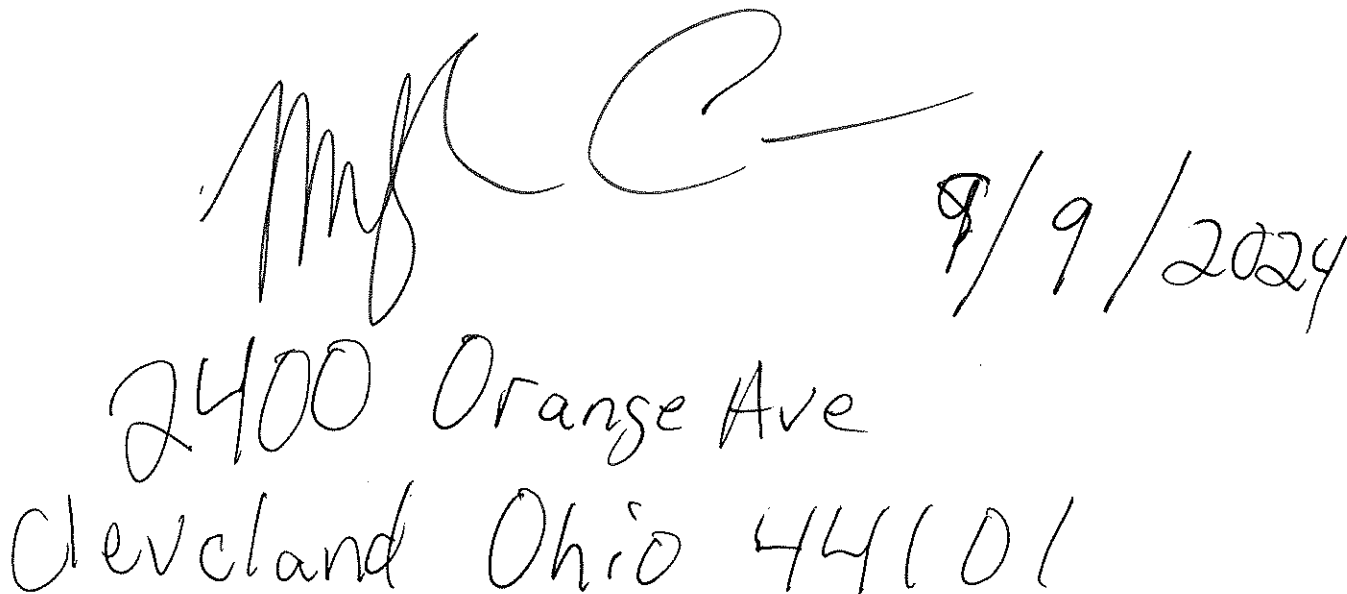 /9/2024
2400 Orange Ave
Cleveland Ohio 44101